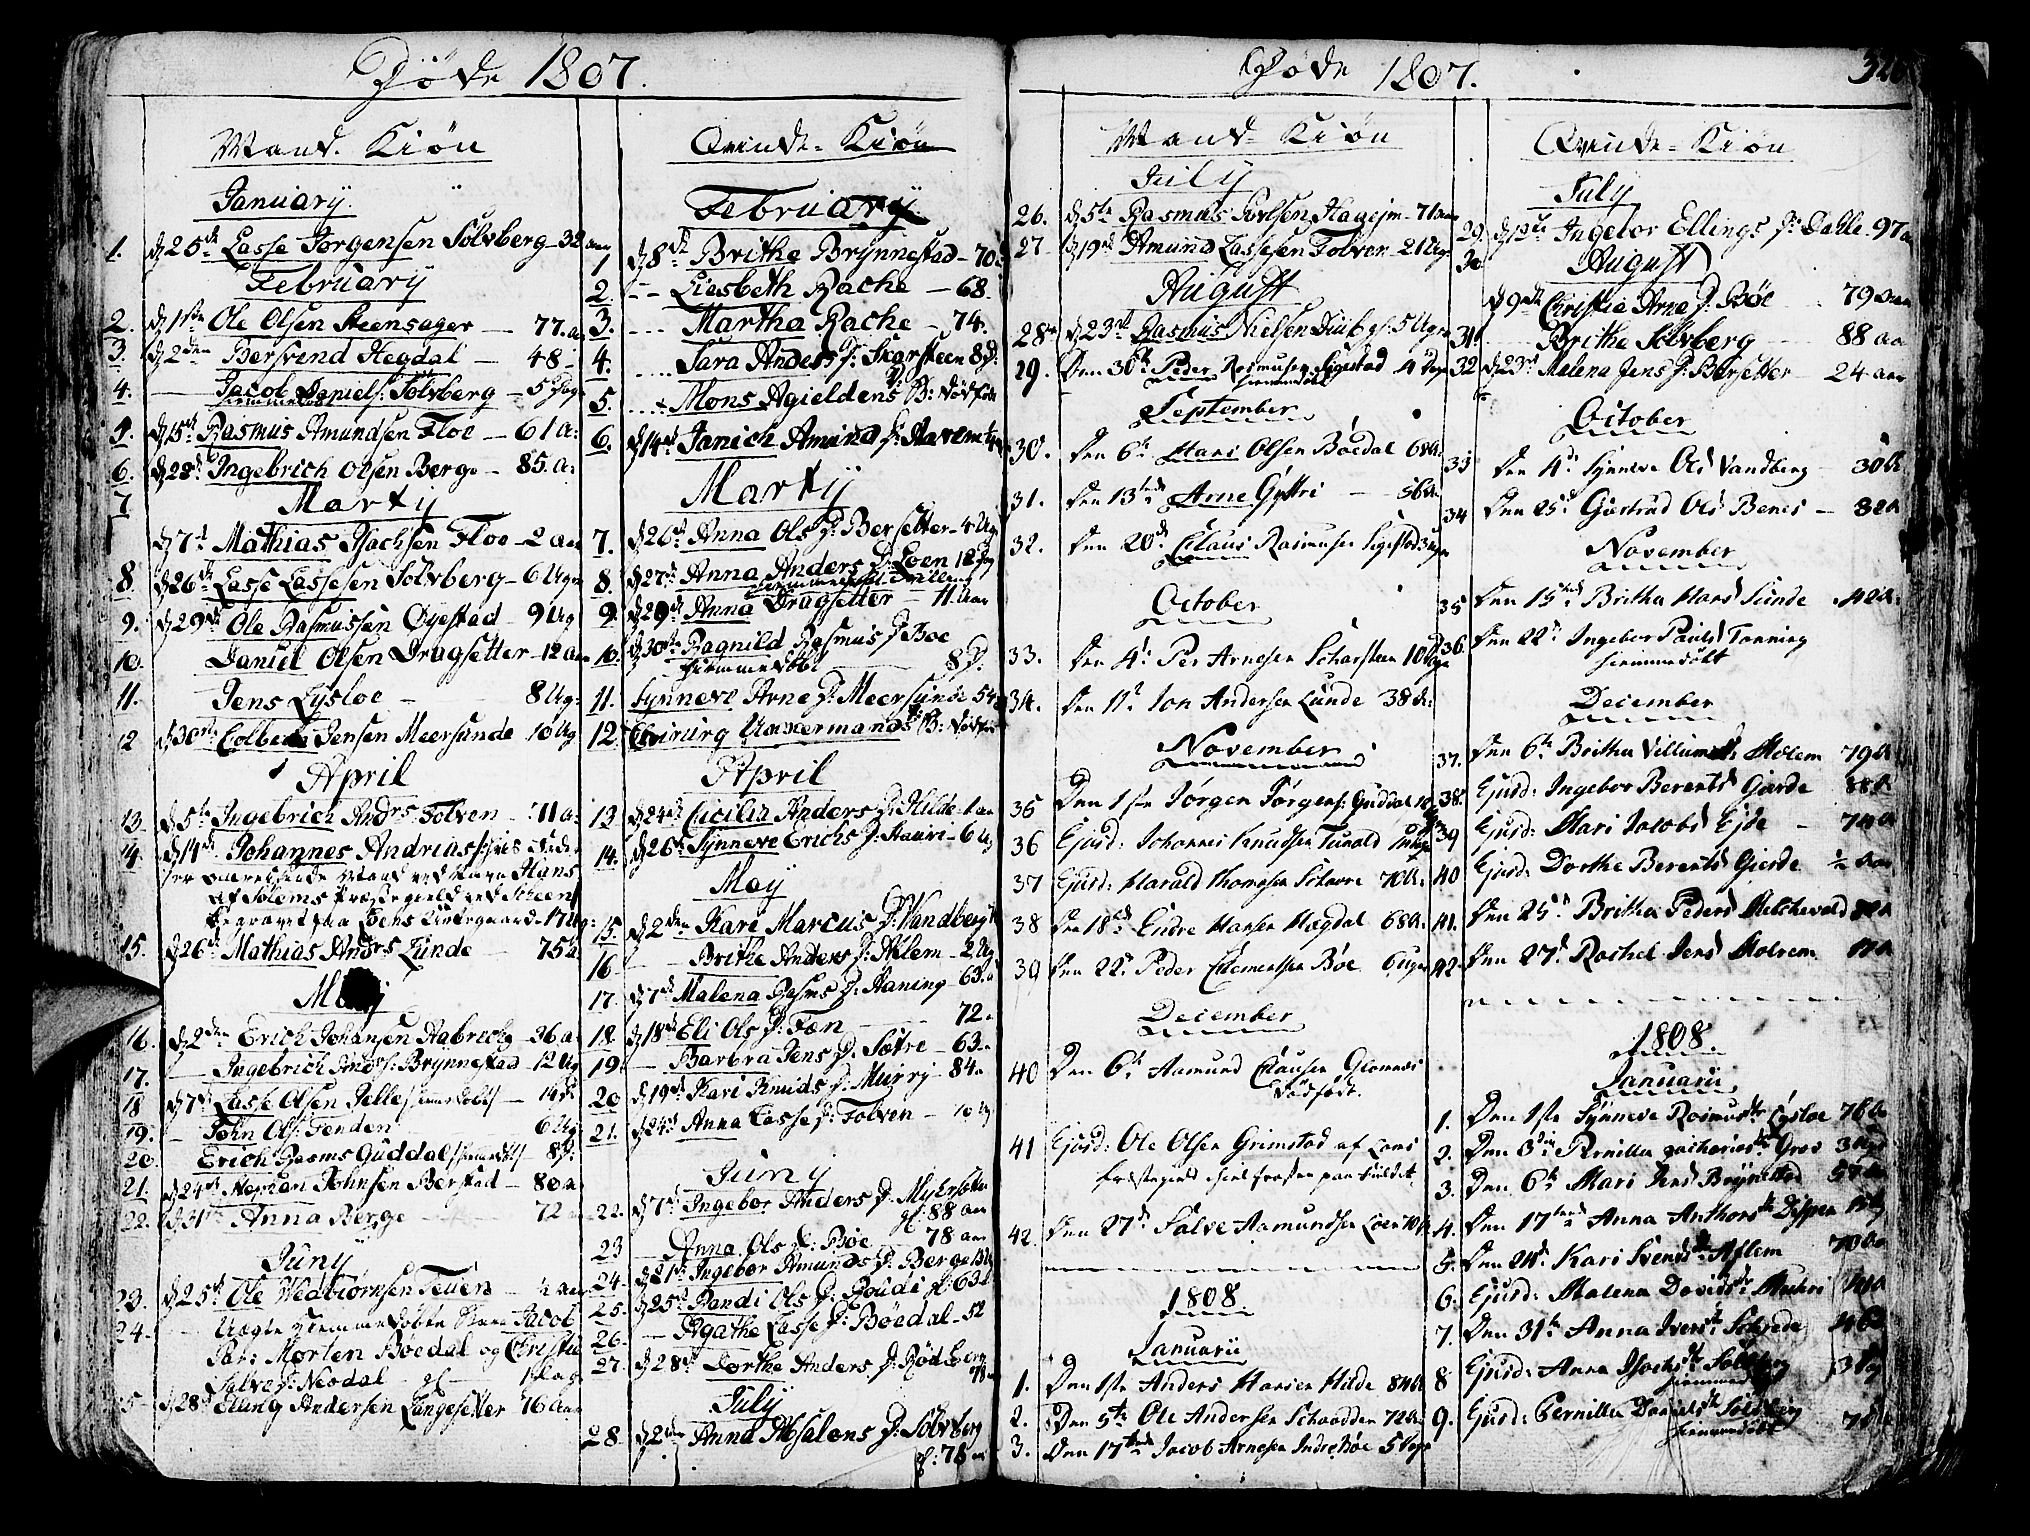 Døde 1807.
Mand-Kiøn
Januarÿ.
1. d 25de Lasse Jørgensen Solvberg - 32 aar
Februarÿ
2. d 1ste Ole Olsen Steensager - 77. a
3. d 2den Bersvend Hegdal - 48 -
4. - Jacob Daniels: Solvberg - 5 Dage
hiemmedøbt
5. d 15de Rasmus Amundsen Floe - 61 a:
6. d 28de Ingebrich Olsen Berge - 85. a:
7 Martÿ
d 7de Mathias Isachsen Floe - 2 aar
8. d 26de Lasse Lassesen Solvberg - 6 Ug
9. d 29de Ole Rasmussen Øyestad - 9 Ug
10. Daniel Olsen Dragsetter - 12 aar
11. Jens Lysloe - 8 Ug:
12 d 30te Colben Jensen Meersunde - 10 Ug
April
13. d 5te Ingebrich Andrs Tolven - 71 a:
14. d 14de Johannes Andrias
Hans
Begravet paa
15. d 26de Mathias Andrs Lunde - 75 a
Maÿ
16. d 2den Erich Johansen Aabrech - 36 a.
17. - Ingebrich Andrs: Brynnestad - 12 Ug
18 d 7de Lasse Olsen Pelle
19. - John Ols: Tenden - 6 Ug
20. Erich Rasms Guddal - 8 D.
21. d 24de Johnsen Berstad - 80 a
22. d 31te Anna Berge - 72
Junÿ
23. d 25de Ole Wedbiørnsen Teuen - 4 aar
24. - Uægte hiemmedøbte Barn Jacob
Pat: Morten Bøedal og Christie
Salve D: Neodal - gl -
25 - d 28de Elling Andersen Langesetter 76 aar
Qvinde-Kiøn
Februarÿ
1 d 8de Brithe Brynnestad - 70
2. - - Liesbeth Rache - 68.
3. ... Martha Rache - 74.
4. .... Sara Anders D: Skarsteen 8 D.
5. ... Mons Agieldens B: dødfød
6. d 14de Janich Amund D: Aavem
Martÿ
7. d 26de Anna Ols D: Bersetter - 4 Ug
8. d 27de Anna Anders D: Loen 12 Dg
hiemmedøbt Tvilling
9. d 29de Anna Dragsetter - 11 aar
10. d 30te Ragnild Rasmus D Boe
hiemmedøbt 8 D.
11. Synneve Arne D: Meersunde 54
12. Chirurg Unxermands B: dødfød
April
13. d 24de Cicilia Anders D: Hilde - 1 aar
14. d 26de Synneve Erichs D: Aaure - 6 Ug
Maÿ
15. d 2den Kari Marcus D: Wandberg
16 - Brithe Anders D: Aslem - 2 Ug
17. d 7de Malena Rasms D: Haning - 63. a
18. d 18de Eli Ols D: Fæn - 72.
19. - Barbra Jens D. Sætre - 63.
20 d 19de Kari Knuds D: Muirj - 84.
21. d 24de Anna Lasse D: Tolven - 10 Ug
Junÿ
22. d 7de Ingebor Anders D: Myklebust
gl: 88 aar
23 - Anna Ols D: Bøe 78 aar
24. d 21de Ingebor Amunds D: Berge
25. d 25de Randi Ols D. Roudi gl: 63 a
26. - Agathe Lasse D: Bøedal - 52
27. d 28de Dorthe Anders D: Rødberg
78
July
28. d 2den Anna Absalons D: Solvberg
gl: 78 a
Døde 1807.
Mand-Kiøn
July
26. d 5te Rasmus Povlsen Hagejm - 71 aar
27. d 19de Amund Lassesen Tolven - 21 Ug
August
28. d 23de Rasmus Nielsen gl. 5 Ug
29. Den 30te Peder Rasmussen Sigestad 4 Dage
hiemmedøbt
September
30. Den 6te Hans Olsen Bøedal 68 A.
31. den 13de Arne Gyttri - 56 A.
32. den 20de Claus Rasmusen Sigestad
October
33. den 4de Per Arnesen Scharsteen 10
34. den 11te Jon Andersen Lunde 38 A:
November
35 Den 1ste Jørgen Jørgens: Guddal
36 Ejusd: Johannes Knudsen Tunold
37 Ejusd: Harald Thomesen Schore 70 A.
38 den 18de Endre Hansen Hægdal 68 A.
39 den 22de Peder Clemensen Bøe. 6 uger
December
40 Den 6te Aamund Clausen Glomnes
dødfødt.
41 Ejusd: Ole Olsen Grimstad af Lans
42. den 27de Salve Aamundsen Loen 70 A
1808.
Januarii
1. Den 1ste Anders Hansen Hilde 84 A
2. Den 5te Ole Andersen Schaadden 72 A.
3. Den 17de Jacob Arnesen IndreBøe 5 Dage
Qvinde-Kiøn
July
29. d 12te Ingebor Ellings D: Dahle. 97 a
30 August
d 9de Christie Arne D: Bøe . . 79 aar
31 Brithe Solvberg - 88 aa
32 d 23de Malena Jens D: Bersetter - 24 aar
October
33 den 4de Synneve Ols Vandberg - 30 A
34 Den 25de Giertrud Ols Benes - 82 A
November
35 Den 15de Britha Hans Sunde . 42 A.
36. Den 22de Ingebor Pauls Tonning
hiemmedøbt
December
37. Den 6te Britha Villums Holem 79 A
38. Ejusd: Ingebor Berents Giærde 88 A
39 Ejusd: Mari Jacobs Ejde - 74 A
40 Ejusd: Dorthe Berents Gierde ½ Aar
41. Den 25de Britha Peders Melchevold
42. Den 27de Rachel Jens Holrem
1808.
Januarii
1. Den 1ste Synneve Rasmusdr Lysloe 76 A
2. Den 3die Pernille Zachariesdr Gres
3. Den 6te Mari Jens Brynestad 57 A
4. Den 17tende Anna Anthonsdr
5. Den 21de Kari Svendsdr Aslem 70 Aar
6. Ejusd: Malena Davidsdr
7. Den 31te Anna Iversdr
8 Ejusd: Anna Isachsdr Solvberg
hiemmedøbt
9. Ejusd: Pernille Danielsdr Solvberg
hiemmedøbt